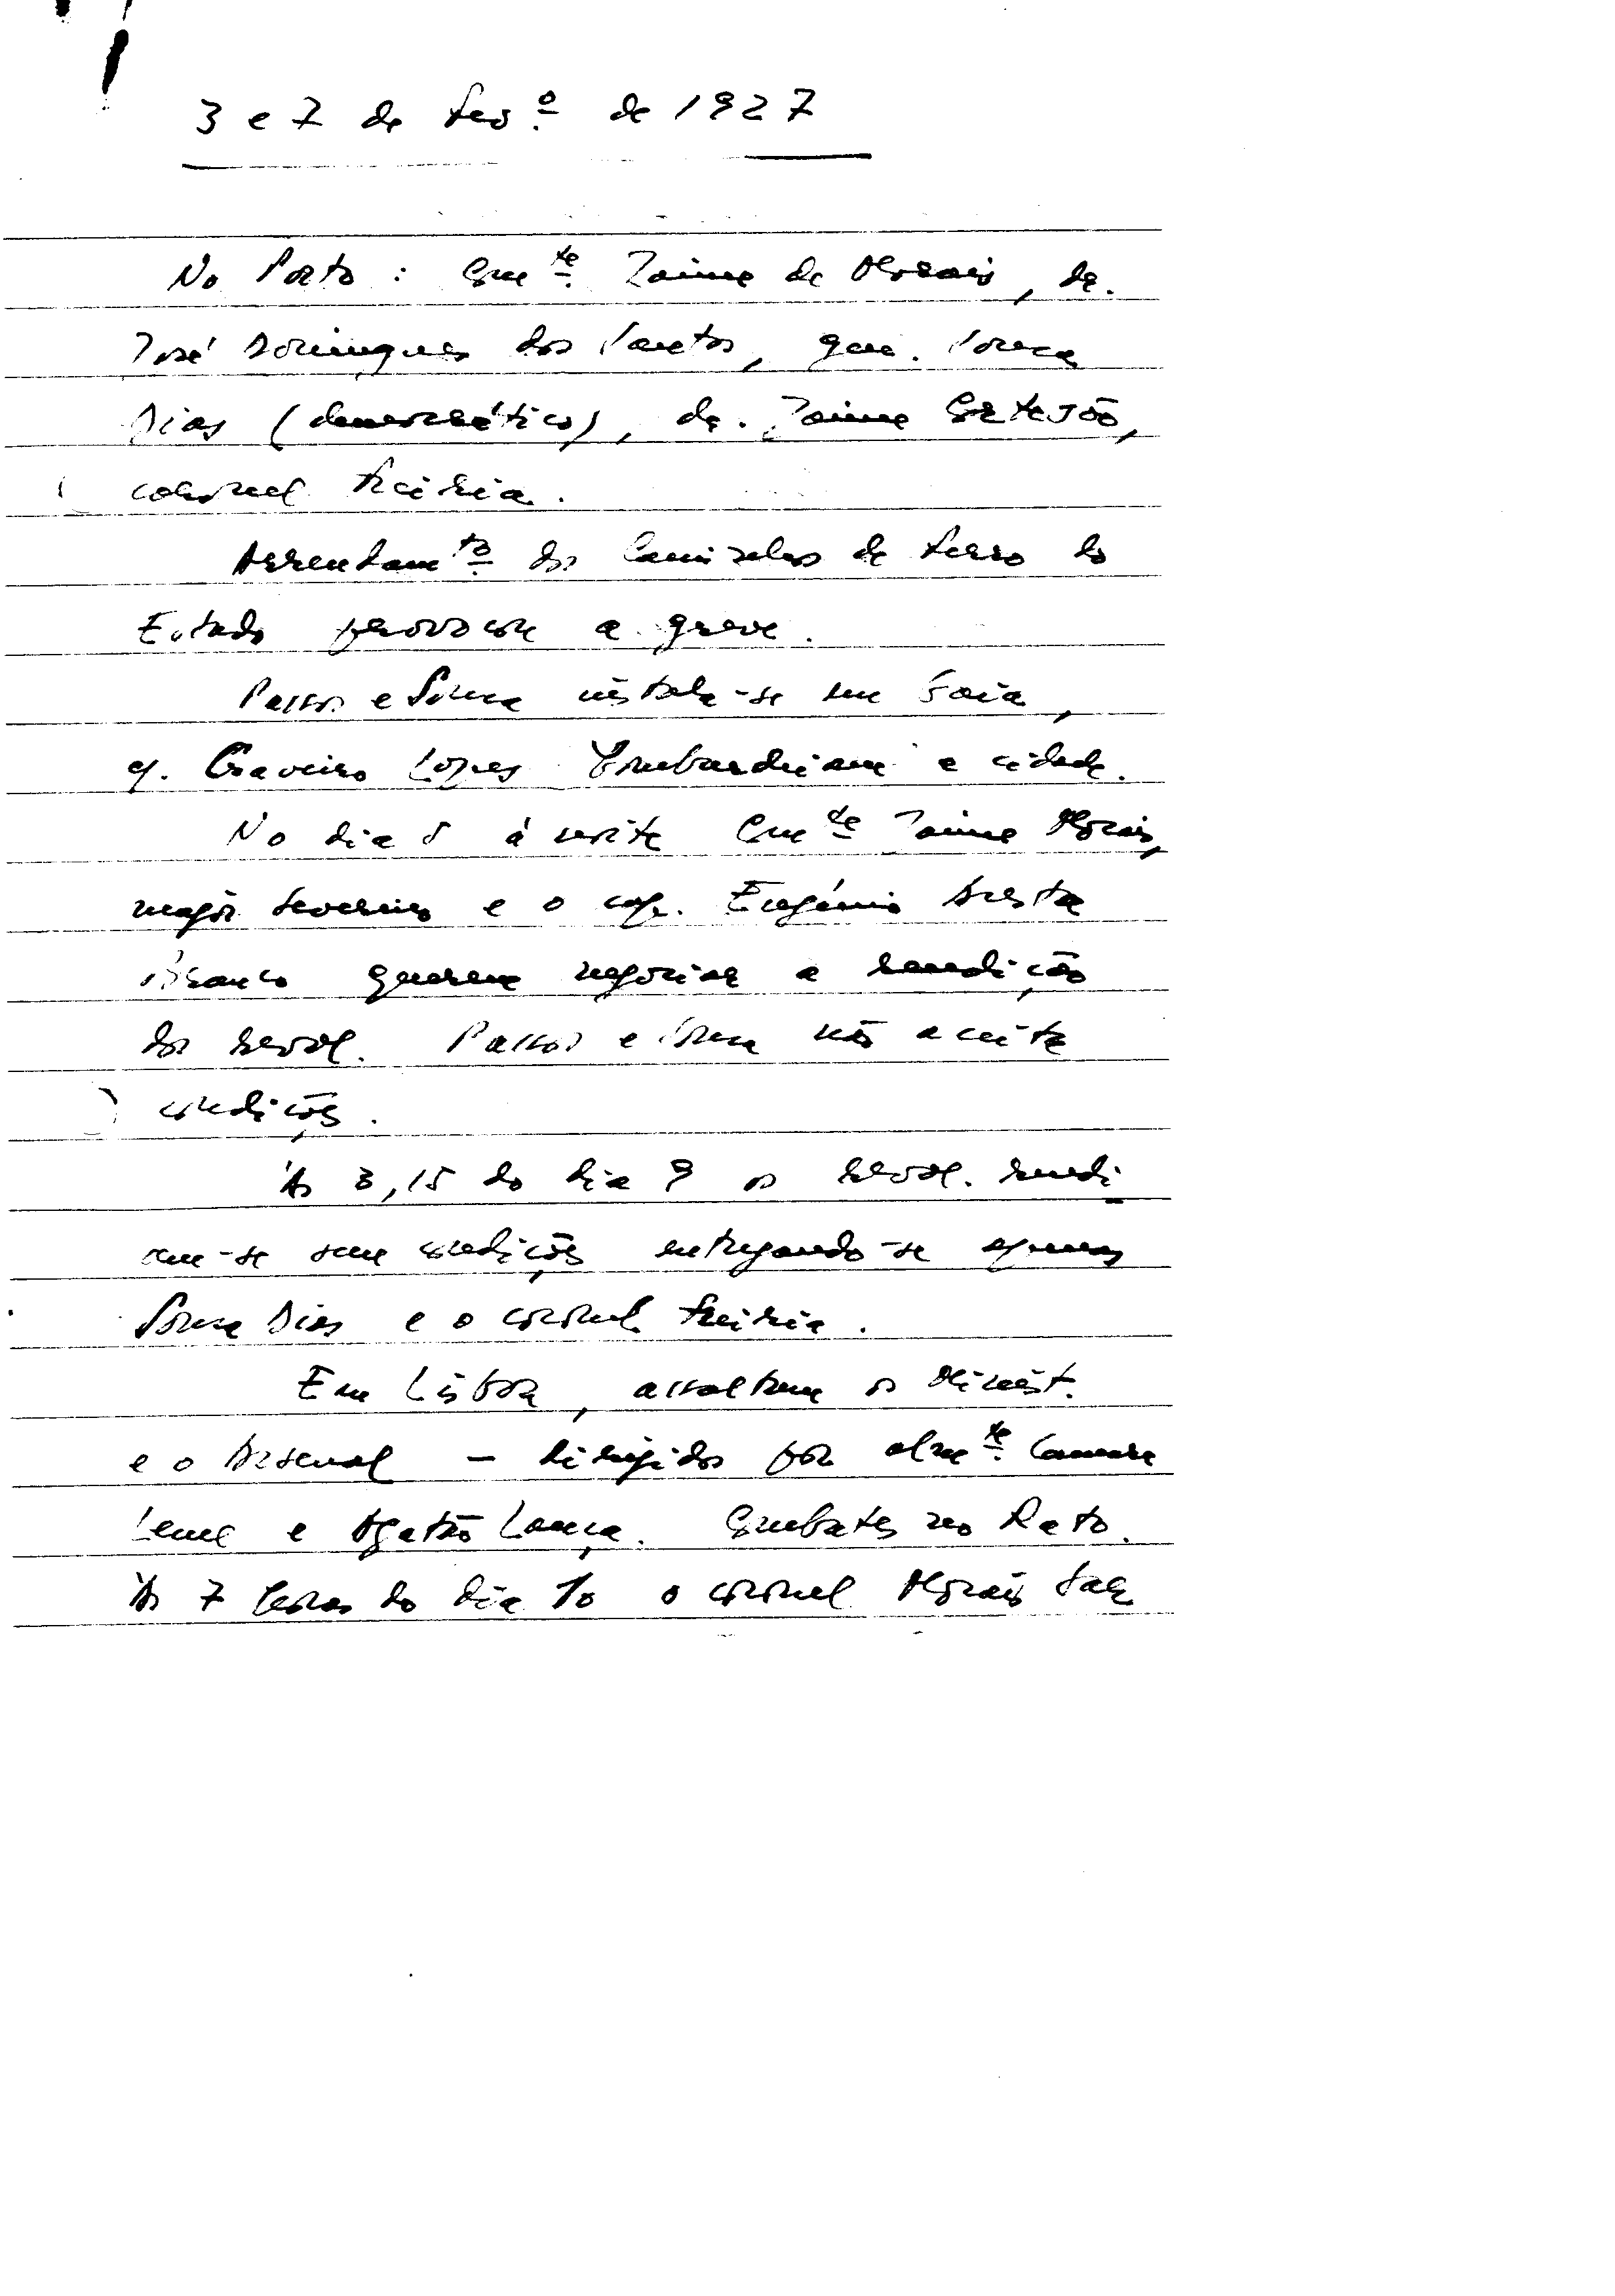 3 e 7 de Fev.º de 1927
No Porto : Com.te Jaime de Morais, dr.
José Domingues dos Santos, gen. Sousa
Dias (democrático), dr. Jaime Cortesão,
coronel Freiria.
Arrendam.to dos Caminhos de Ferro do
Estado provocou a greve.
Passos e Sousa instala-se em Gaia,
q. Craveiro Lopes bombardeiam a cidade.
No dia 8 à noite Com.te Jaime Morais,
major Severino e o cap. Eugénio Aresta
Branco querem negociar a rendição
dos revol. Passos e Sousa não aceita
condições.
Às 3,15 do dia 9 os revol. rendi
am-se sem condições entregando-se apenas
Sousa Dias e o coronel Freiria.
Em Lisboa, assaltam os Minist.
e o Arsenal – dirigidos por alm.te Camara
Leme e Agatão Lança. Combates no Rato.
Às 7 horas do dia 10 o coronel Morais Sar